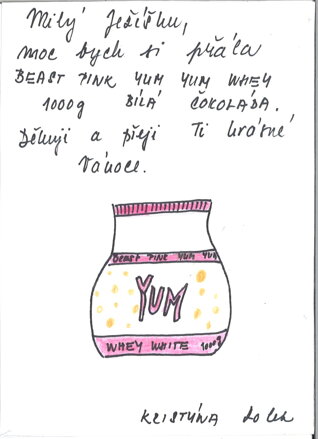 Milý Ježíšku,
moc bych si přála
BEAST PINK YUM YUM WHEY
1000g BÍLÁ ČOKOLÁDA.
Děkuji a přeji Ti krásné
Vánoce.
BEAST PINK YUM YUM
YUM
WHEY WHITE 1000g
KRISTÝNA 20 let